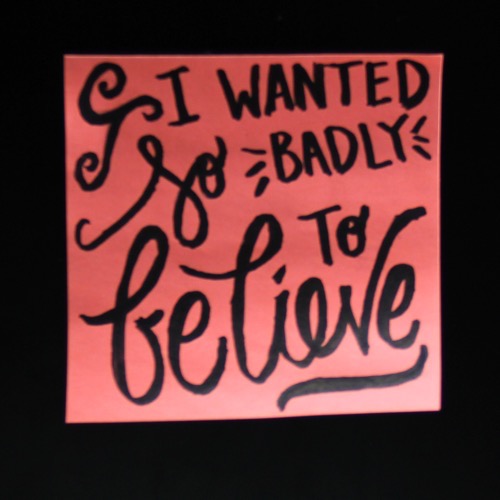 I WANTED
so BADLY
TO
believe